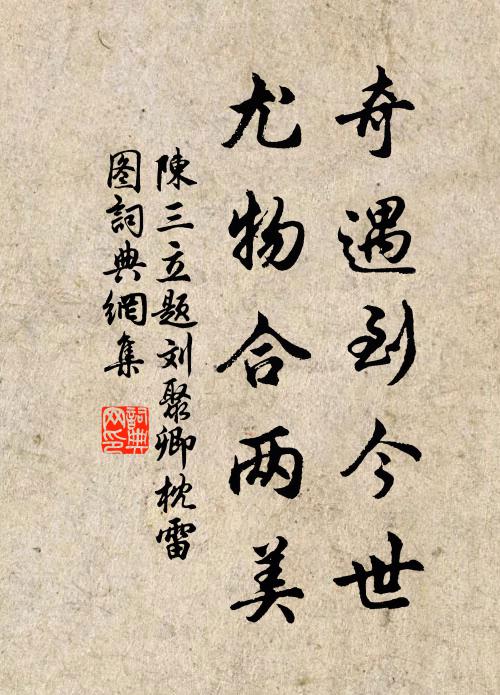 奇遇到今世
尤物合两美
陳三立题刘聚卿枕雷
图詞典網集
詞典网印